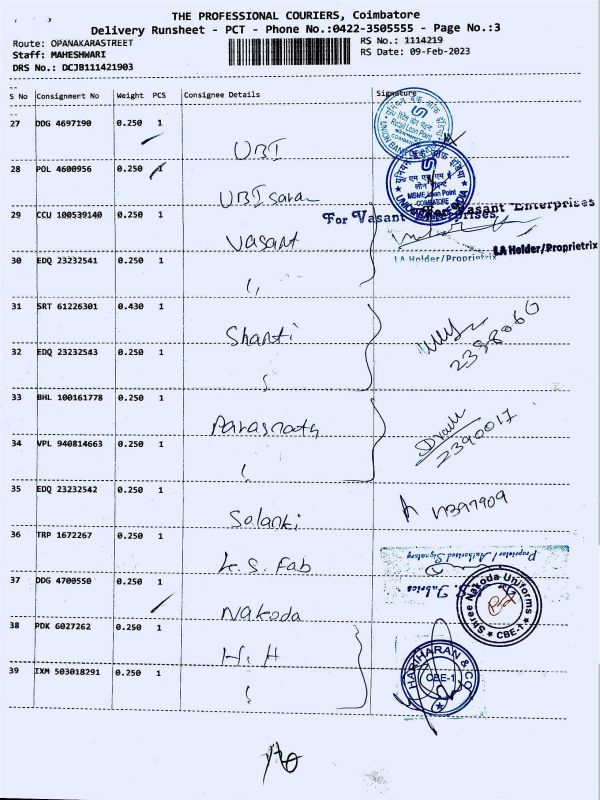 THE PROFESSIONAL COURIERS, Coimbatore
Delivery Runsheet - PCT - Phone No.:0422-3505555 - Page No.:3
Route: OPANAKARASTREET
RS No.: 1114219
Staff: MAHESHWARI
RS Date: 09-Feb-2023
DRS No.: DCJB111421903
S No Consignment No Weight PCS Consignee Details Signature
27 DDG 4697190 0.250 1
UBI
28 POL 4600956 0.250 1
UBI
MSME Loan Point
COIMBATORE
29 CCU 100539140 0.250 1
Vasant
For Vasant Enterprises
Vasant Enterprises
LA Holder/Proprietrix
LA Holder/Proprietrix
30 EDQ 23232541 0.250 1
"
31 SRT 61226301 0.430 1
Shanti
2398060
32 EDQ 23232543 0.250 1
33 BHL 100161778 0.250 1
Parasnath
2390017
34 VPL 940814663 0.250 1
35 EDQ 23232542 0.250 1
Solanki
36 TRP 1672267 0.250 1
K.S. Fab
Proprietor / Authorised Signatory
Fabrics
37 DDG 4700550 0.250 1
Nakoda
Shree Nakoda Uniforms
CBE-1
38 PDK 6027262 0.250 1
H.H
HARIHARAN & CO
CBE-1
39 IXM 503018291 0.250 1